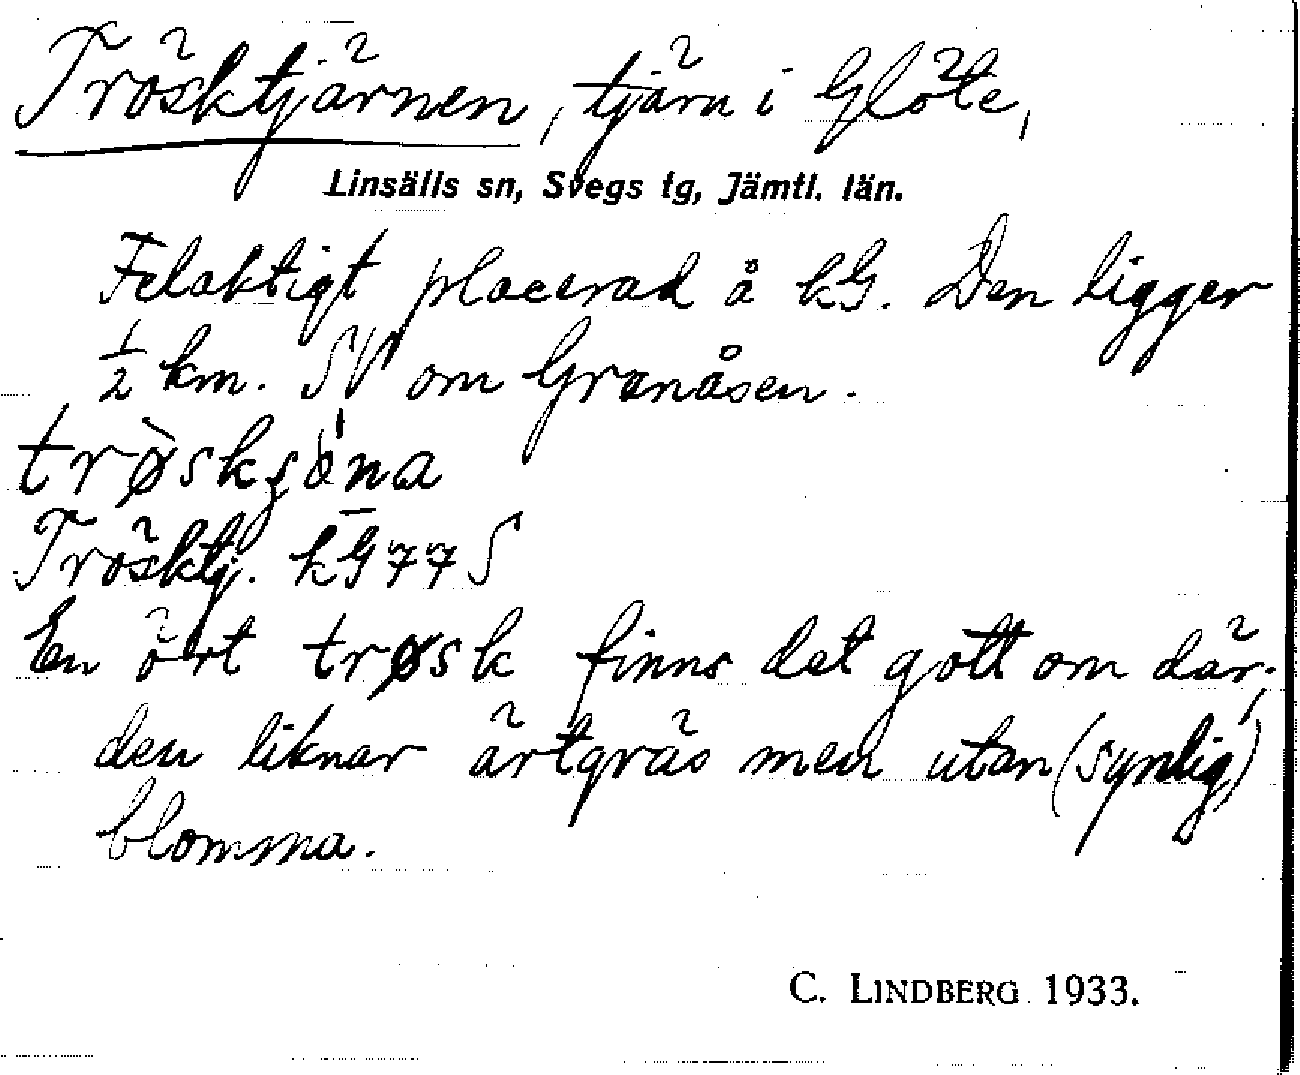 Trösktjärnen, tjärn i Glöte,
Linsälls sn, Svegs tg, Jämtl. län.
Felaktigt placerad å kG. Den ligger
½ km. SV om Granåsen.
Trösktj. kG 77 S
En ört trøsk finns det gott om där;
den liknar ärtgräs men utan (synlig)
blomma.
C. LINDBERG 1933.